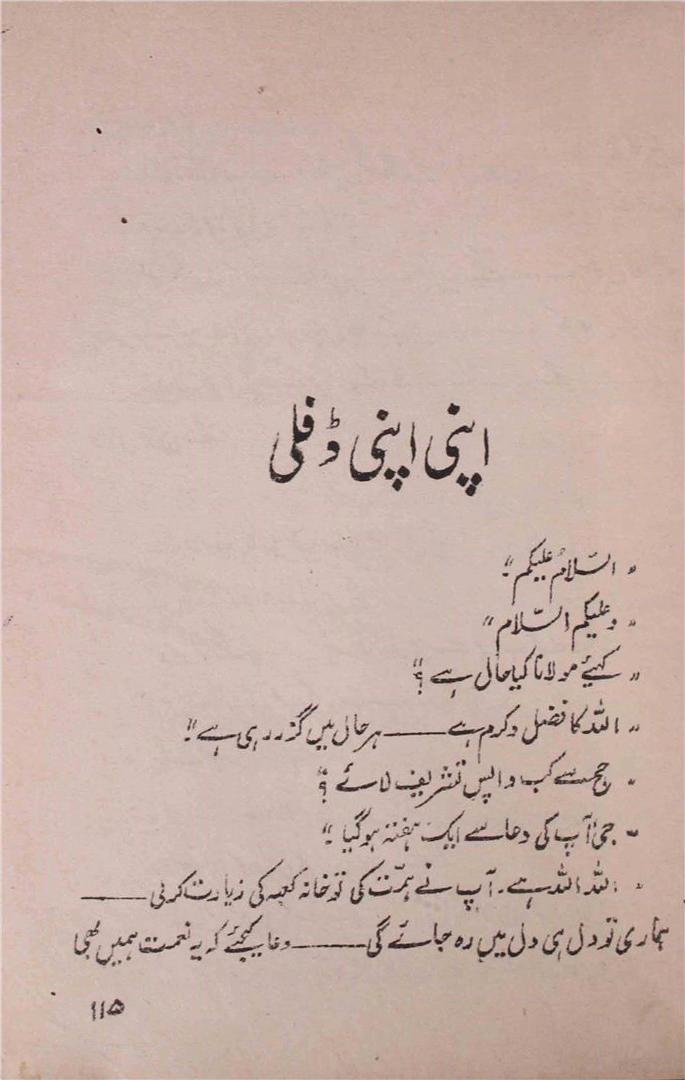 اپنی اپنی ڈفلی
"السّلام علیکم"۔
"وعلیکم السّلام"
"کہیئے مولانا کیا حال ہے؟"
"اللہ کا فضل وکرم ہے——ہر حال میں گزر رہی ہے"۔
"حج سے کب واپس تشریف لائے؟"
"جی آپ کی دعا سے ایک ہفتہ ہوگیا۔"
"اللہ اللہ ہے۔ آپ نے ہمّت کی تو خانہ کعبہ کی زیارت کرلی——
ہماری تو دل ہی دل میں رہ جائے گی——دعا کیجئے کہ یہ نعمت ہمیں بھی
۱۱۵